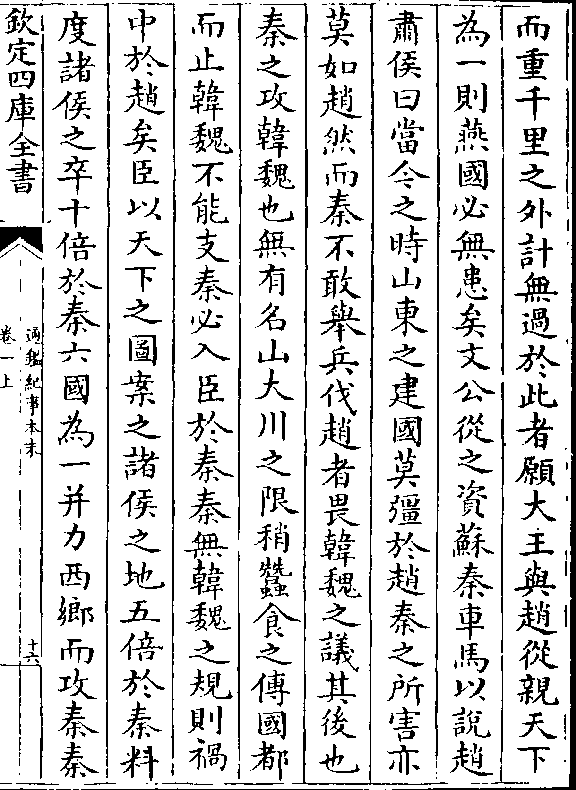 而重千里之外計無過於此者願大王與趙從親天下
為一則燕國必無患矣文公從之資蘇秦車馬以說趙
肅侯曰當今之時山東之建國莫彊於趙秦之所害亦
莫如趙然而秦不敢舉兵伐趙者畏韓魏之議其後也
秦之攻韓魏也無有名山大川之限稍蠶食之傅國都
而止韓魏不能支秦必入臣於秦秦無韓魏之規則禍
中於趙矣臣以天下之圖案之諸侯之地五倍於秦料
度諸侯之卒十倍於秦六國為一并力西鄉而攻秦秦
欽定四庫全書
通鑑紀事本末
卷一上
十六